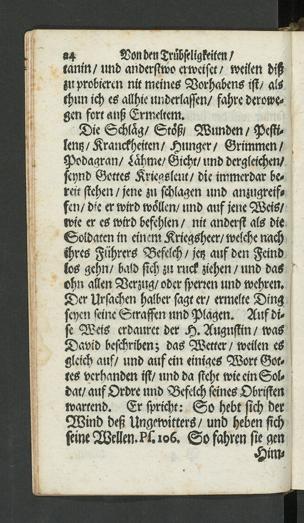 24 Von den Trübseligkeiten /
tanin / und anderstwo erweiset / weilen diß
zu probieren nit meines Vorhabens ist / als
thun ich es allhie underlassen / fahre derowe-
gen fort auß Ermeltem.
Die Schläg / Stöß / Wunden / Pesti-
lentz / Kranckheiten / Hunger / Grimmen /
Podagran / Lähme / Gicht / und dergleichen /
seynd Gottes Kriegsleut / die immerdar be-
reit stehen / jene zu schlagen und anzugreif-
fen / die er wird wöllen / und auf jene Weis /
wie er es wird befehlen / nit anderst als die
Soldaten in einem Kriegsheer / welche nach
ihres Führers Befelch / jetz auf den Feind
los gehn / bald sich zu ruck ziehen / und das
ohn allen Verzug / oder sperren und wehren.
Der Ursachen halber sagt er / ermelte Ding
seyen seine Straffen und Plagen. Auf di-
se Weis erdauret der H. Augustin / was
David beschriben; das Wetter / weilen es
gleich auf / und auf ein einiges Wort Got-
tes verhanden ist / und da steht wie ein Sol-
dat / auf Ordre und Befelch seines Obristen
wartend. Er spricht: So hebt sich der
Wind deß Ungewitters / und heben sich
seine Wellen. Ps. 106. So fahren sie gen
Him-